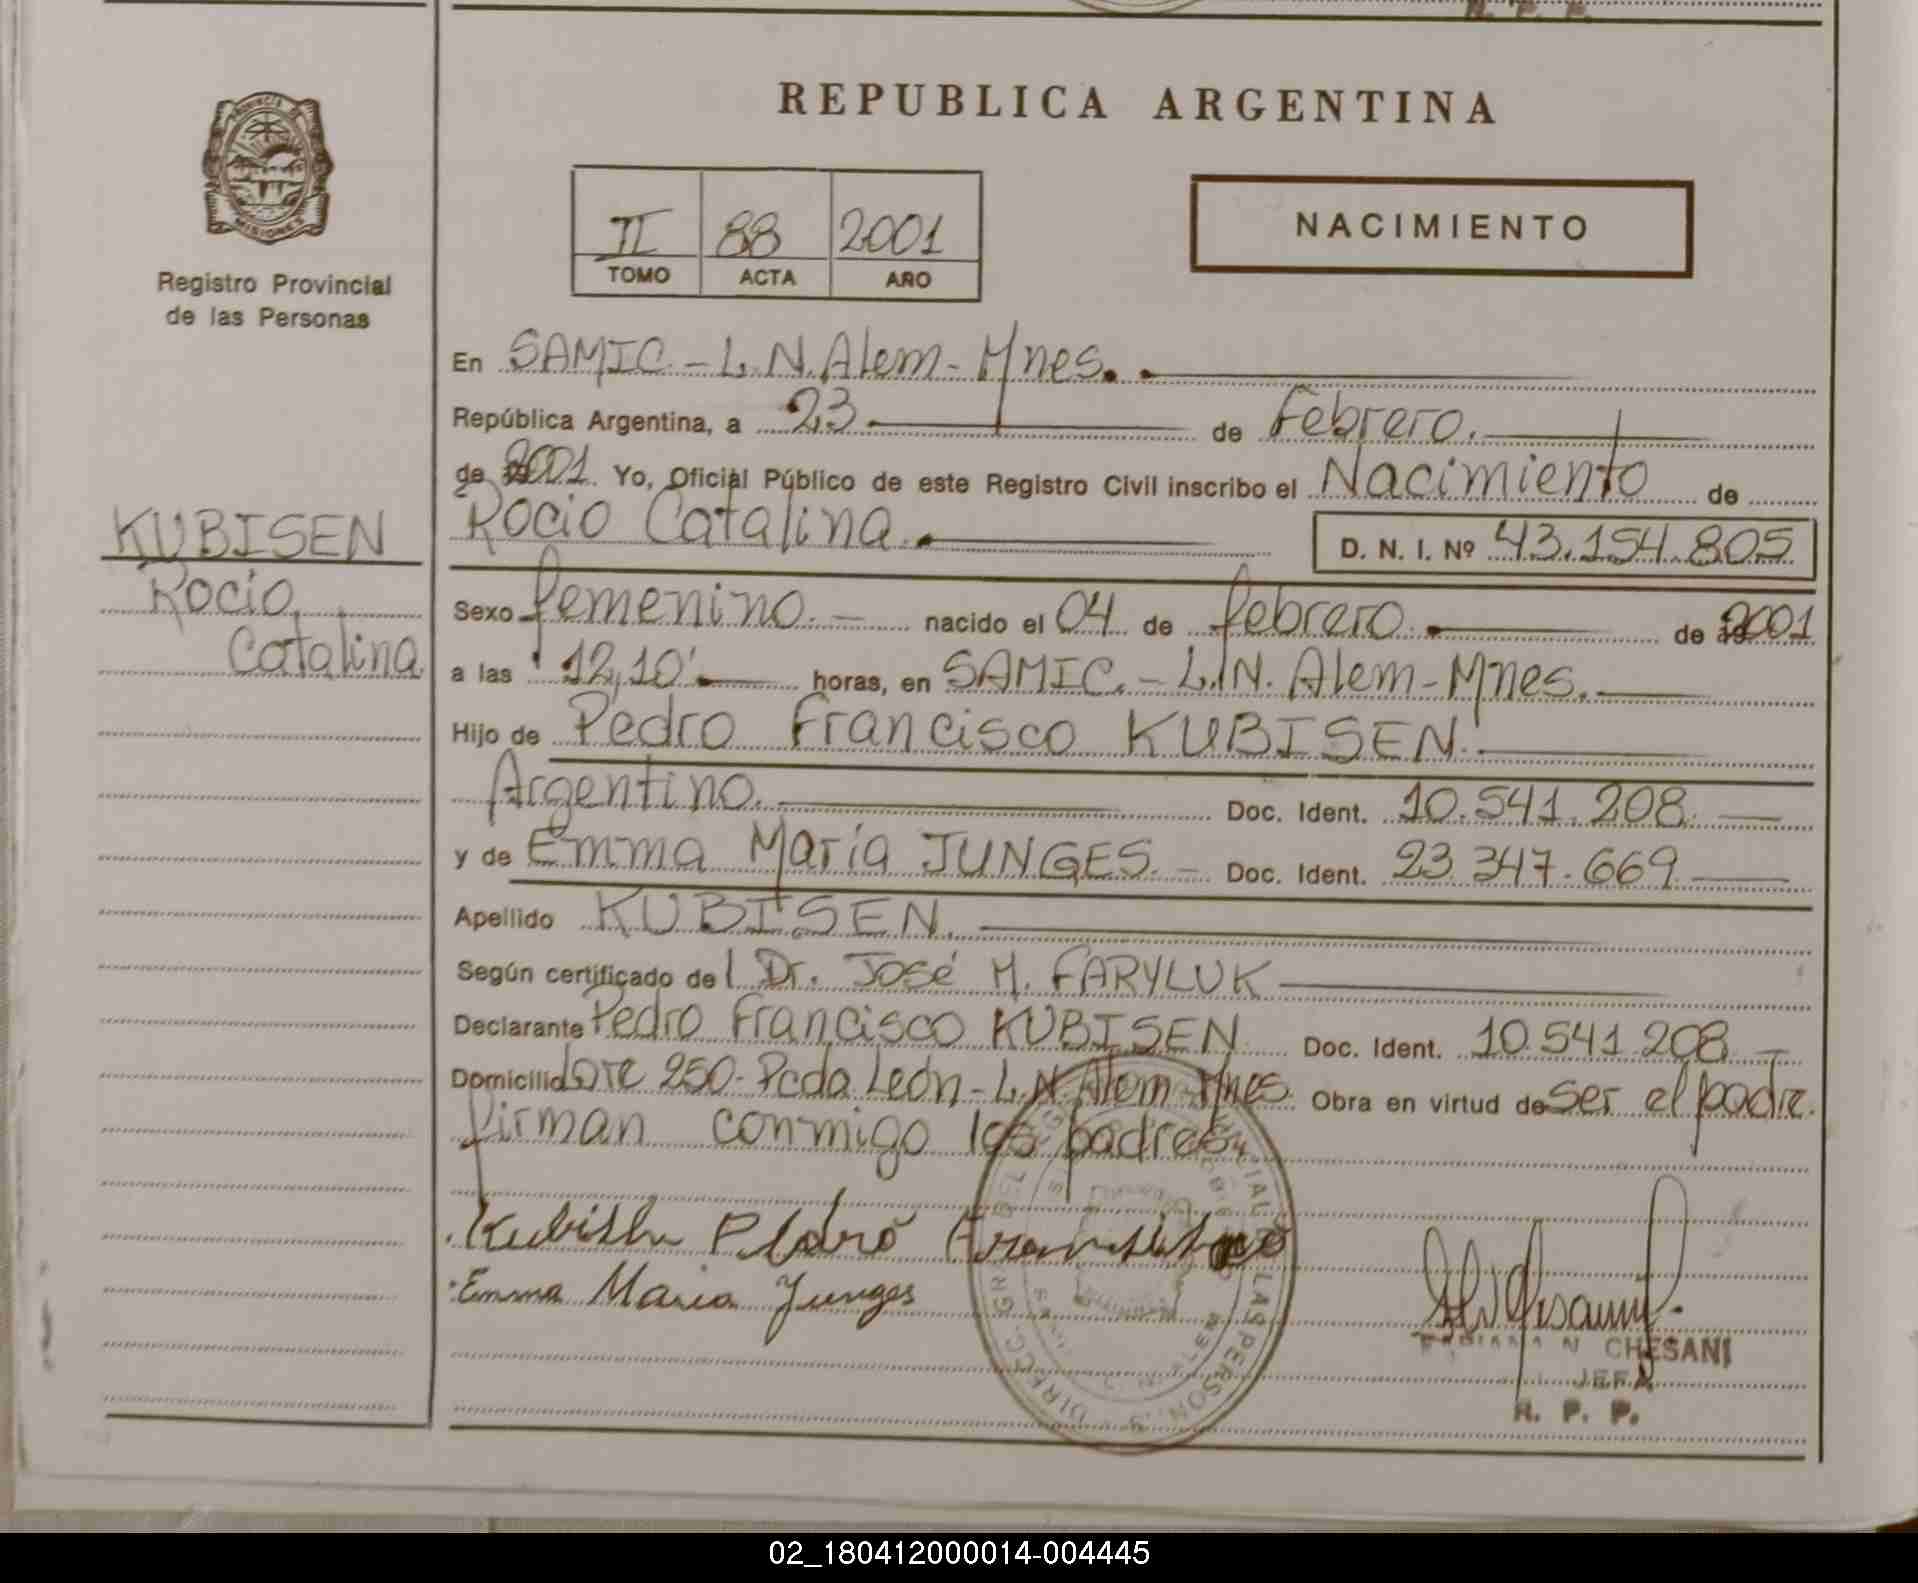 R. P. P.
REPUBLICA ARGENTINA
PROVINCIA
MISIONES
Registro Provincial
de las Personas
II 88 2001
TOMO ACTA AÑO
NACIMIENTO
En SAMIC.-L.N.Alem-Mnes.
República Argentina, a 23 de Febrero.
de 2001. Yo, Oficial Público de este Registro Civil inscribo el Nacimiento de
Rocio Catalina. D. N. I. Nº 43.154.805
KUBISEN
Rocio
Catalina
Sexo femenino.- nacido el 04 de febrero. de 2001
a las 12,10' horas, en SAMIC.-L.N. Alem-Mnes.
Hijo de Pedro Francisco KUBISEN.
Argentino. Doc. Ident. 10.541.208.
y de Emma María JUNGES.- Doc. Ident. 23.347.669
Apellido KUBISEN.
Según certificado del Dr. José M. FARYLUK
Declarante Pedro Francisco KUBISEN Doc. Ident. 10.541.208
Domicilio Lote 250-Pcda León-L.N.Alem-Mnes. Obra en virtud de ser el padre.
firman conmigo los padres
Pedro
Emma Maria Junges
N CHESANI
JEFA
R. P. P.
02_180412000014-004445